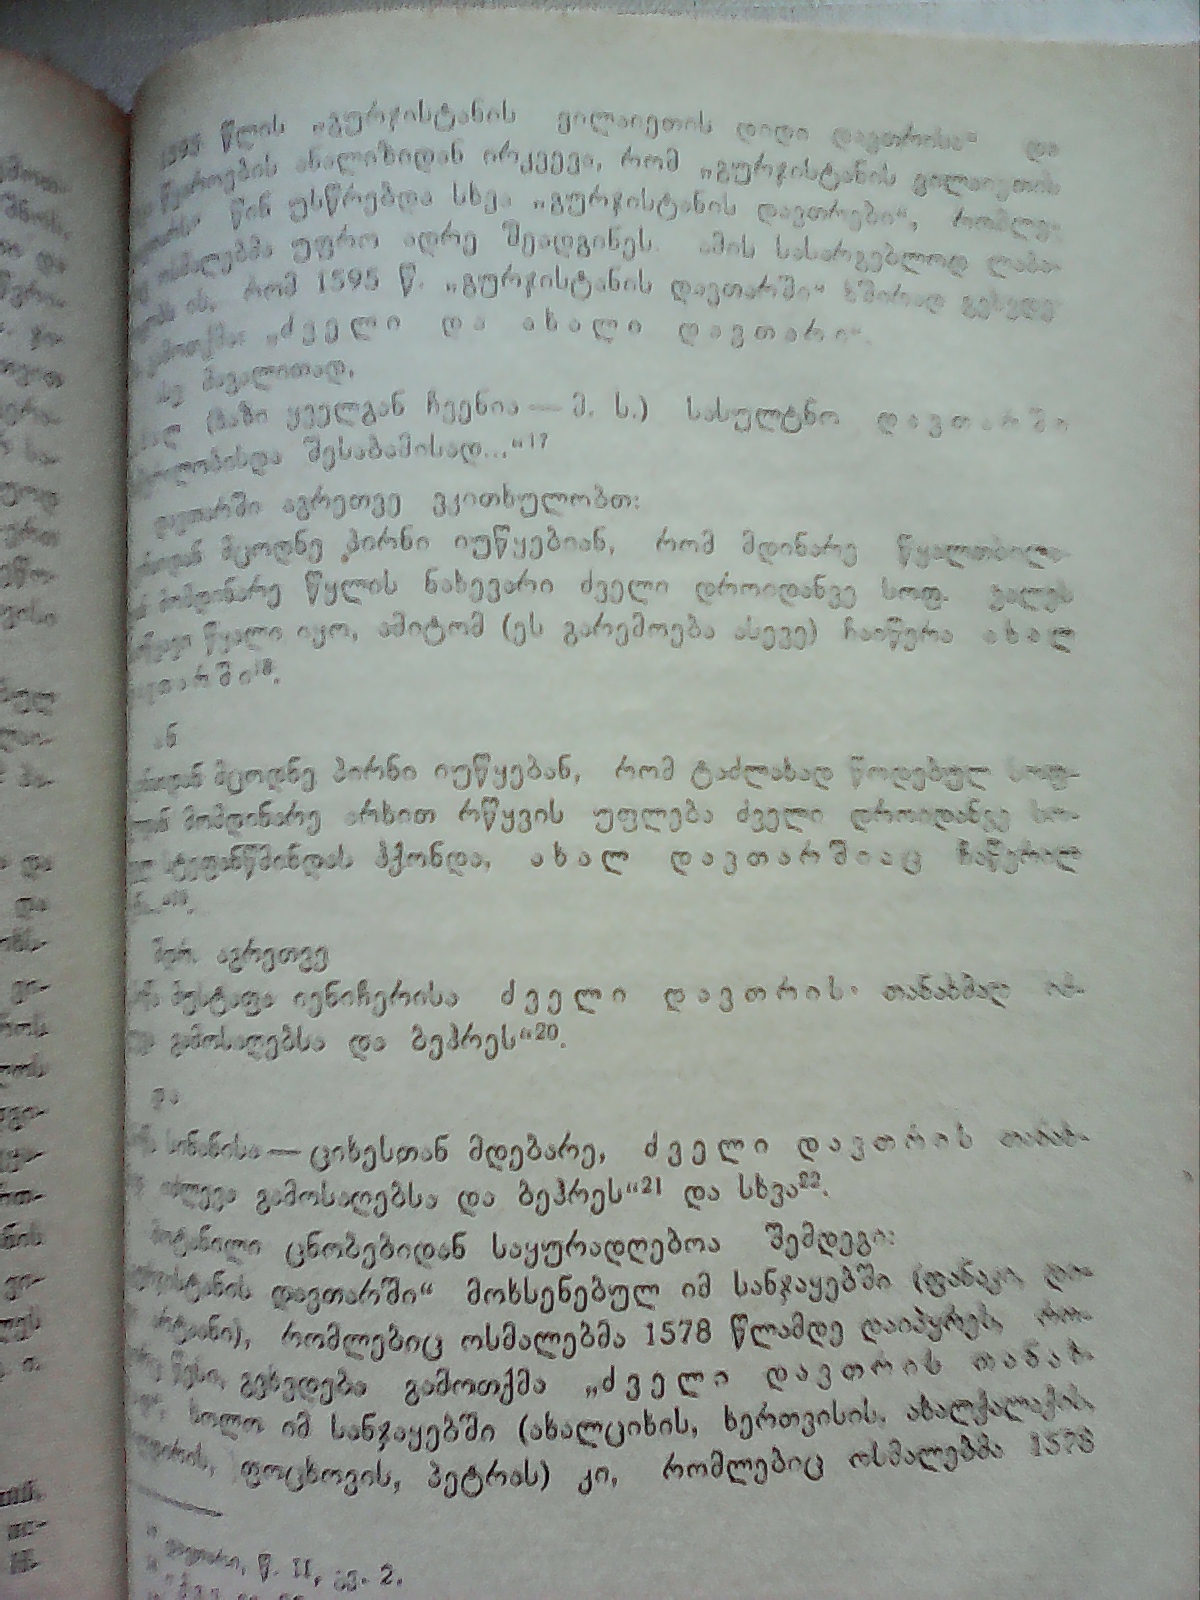 1595 წლის „გურჯისტანის ვილაიეთის დიდი დავთრისა“ და
წყაროების ანალიზიდან ირკვევა, რომ „გურჯისტანის ვილაიეთის
წინ უსწრებდა სხვა „გურჯისტანის დავთრები“, რომლე-
ოსმალებმა უფრო ადრე შეადგინეს. ამის სასარგებლოდ ლაპა-
ის, რომ 1595 წ. „გურჯისტანის დავთარში“ ხშირად გვხვდე-
გამოთქმა: „ძველი და ახალი დავთარი“.
ასე მაგალითად,
(ხაზი ყველგან ჩვენია — შ. ს.) სასულტნო დავთარში
შესაბამისად...“17
დავთარში აგრეთვე ვკითხულობთ:
მცოდნე პირნი იუწყებიან, რომ მდინარე
მომდინარე წყლის ნახევარი ძველი დროიდანვე სოფ. ვალეს
წყალი იყო, ამიტომ (ეს გარემოება ასევე) ჩაიწერა ახალ
თარში18.
ან
მცოდნე პირნი იუწყებან, რომ ტაძლახად წოდებულ სოფ-
მომდინარე არხით რწყვის უფლება ძველი დროიდანვე სო-
სტეფანწმინდას ჰქონდა, ახალ დავთარშიაც ჩაწერილ
შდრ. აგრეთვე
მუსტაფა იენიჩერისა ძველი დავთრის თანახმად იხ-
გამოსაღებსა და ბეჰრეს“20.
და
სინანისა — ციხესთან მდებარე, ძველი დავთრის თანახ-
იძლევა გამოსაღებსა და ბეჰრეს“21 და სხვა22.
მოტანილი ცნობებიდან საყურადღებოა შემდეგი:
დავთარში“ მოხსენებულ იმ სანჯაყებში (ფანაკი, დი-
რომლებიც ოსმალებმა 1578 წლამდე დაიპყრეს, რო-
წესი, გვხვდება გამოთქმა „ძველი დავთრის თანახ-
ხოლო იმ სანჯაყებში (ახალციხის, ხერთვისის, ახალქალაქის,
ფოცხოვის, პეტრას) კი, რომლებიც ოსმალებმა 1578
დავთარი, წ. II, გვ. 2.